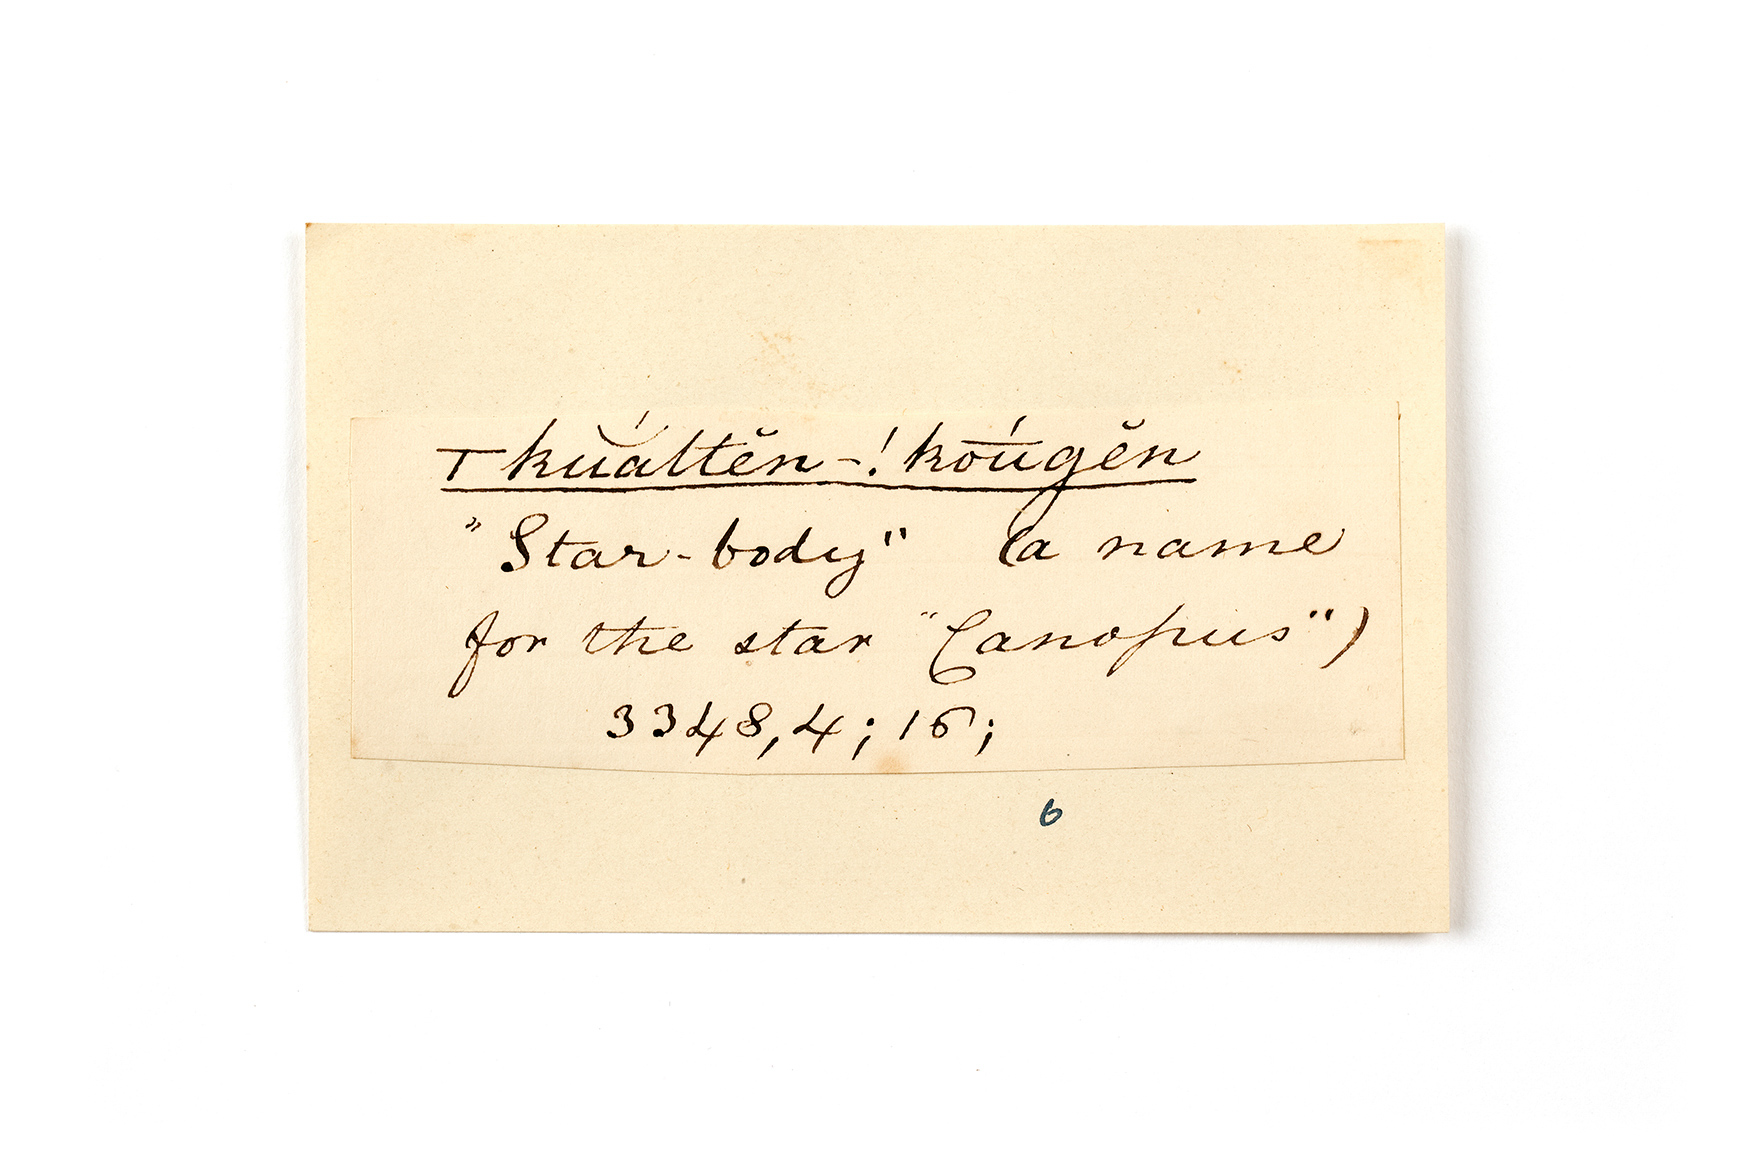 ⊤kŭáttĕn-!kṓŭgĕn
"Star-body" (a name
for the star "Canopus")
3348,4; 16;
6